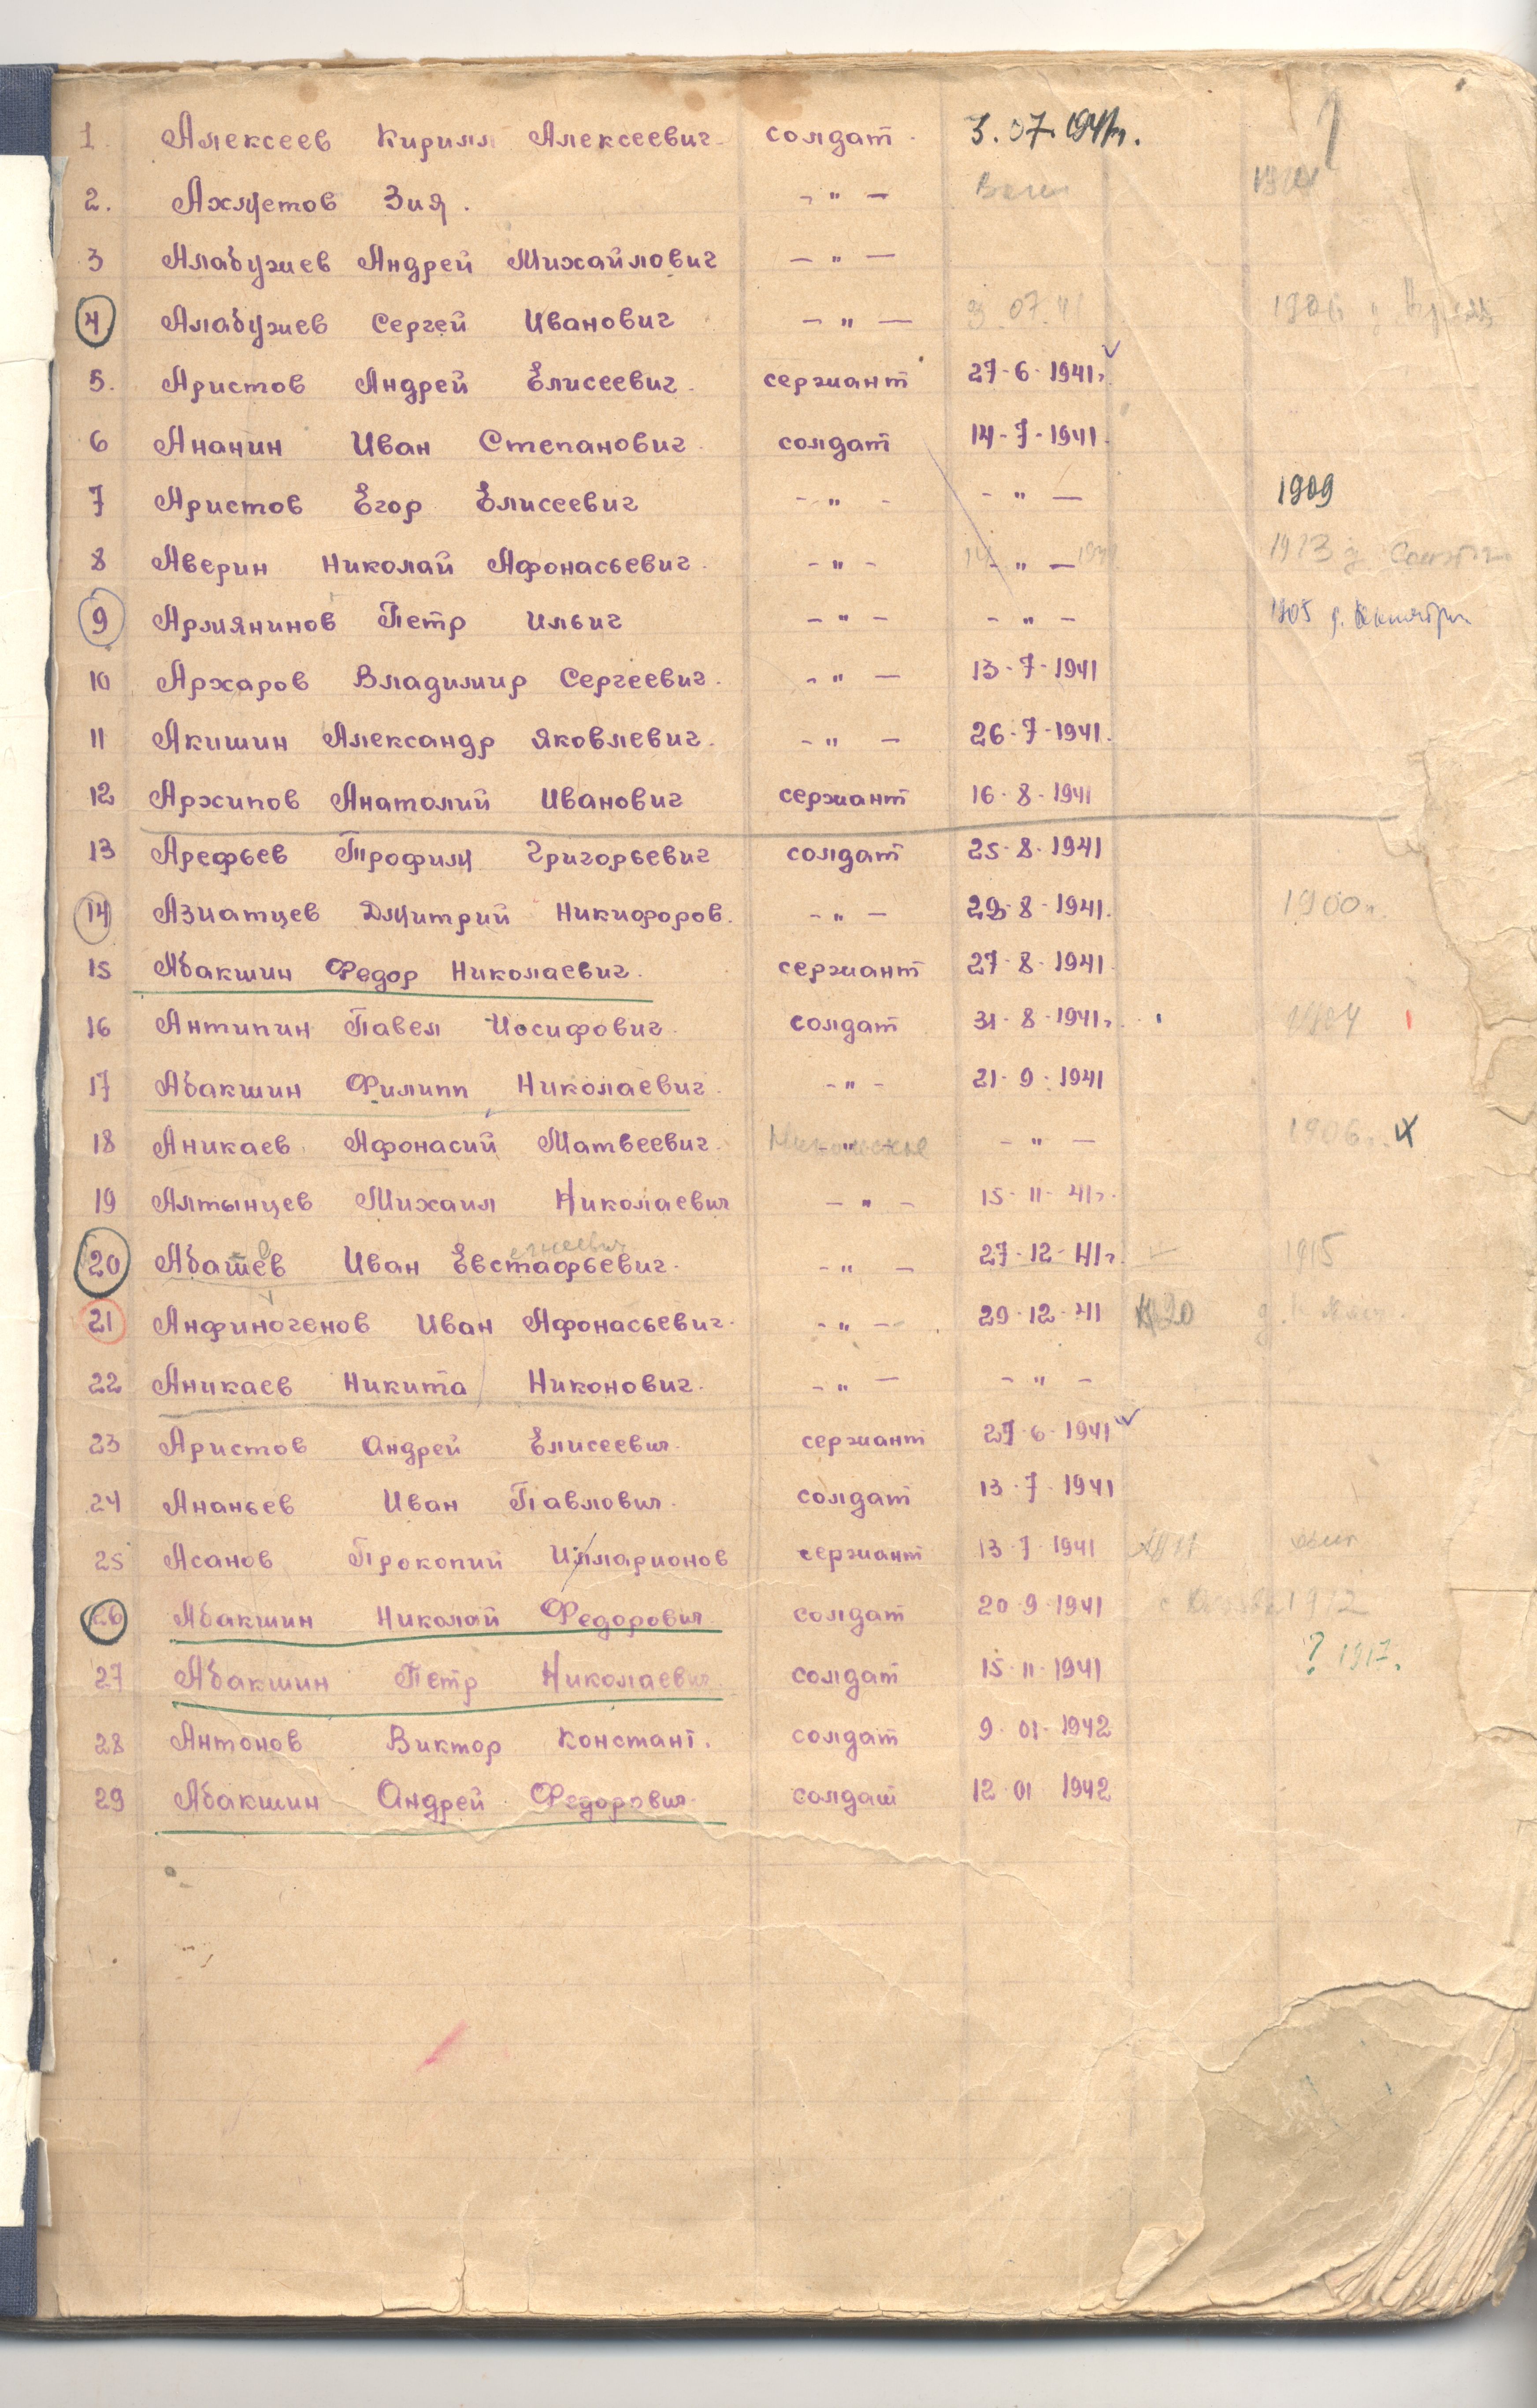 1. Алексеев Кирилл Алексеевич солдат. 3.07.1941г.
2. Ахметов Зия. - " -
3 Алабужев Андрей Михайлович - " -
4 Алабужев Сергей Иванович - " - 3 07.41 1906
5. Аристов Андрей Елисеевич. сержант 27-6-1941г. ✓
6 Ананин Иван Степанович. солдат 14-7-1941.
7 Аристов Егор Елисеевич - " - - " - 1909
8 Аверин Николай Афонасьевич. - " - - " - 1923 д.
9 Армянинов Петр Ильич - " - - " - 1905 д.
10 Архаров Владимир Сергеевич. - " - 13-7-1941
11 Акишин Александр Яковлевич. - " - 26-7-1941.
12 Архипов Анатолий Иванович сержант 16-8-1941
13 Арефьев Трофим Григорьевич солдат 25-8-1941
14 Азиатцев Дмитрий Никифоров. - " - 29-8-1941. 1900г.
15 Абакшин Федор Николаевич. сержант 27-8-1941
16 Антипин Павел Иосифович. солдат 31-8-1941г.
17 Абакшин Филипп Николаевич. - " - 21-9-1941
18 Аникаев Афонасий Матвеевич. " - " - 1906г. х
19 Алтынцев Михаил Николаевич - " - 15-11-41г.
20 Абашев Иван Евстафьевич. - " - 27-12-41г. 1915
21 Анфиногенов Иван Афонасьевич. - " - 29-12-41 д.
22 Аникаев Никита Никонович. - " - - " -
23 Аристов Андрей Елисеевич. сержант 27-6-1941 ✓
24 Ананьев Иван Павлович. солдат 13-7-1941
25 Асанов Прокопий Илларионов сержант 13-7-1941
26 Абакшин Николай Федорович. солдат 20-9-1941 1912
27 Абакшин Петр Николаевич. солдат 15-11-1941 ? 1917.
28 Антонов Виктор Констант. солдат 9-01-1942
29 Абакшин Андрей Федорович. солдат 12 01 1942